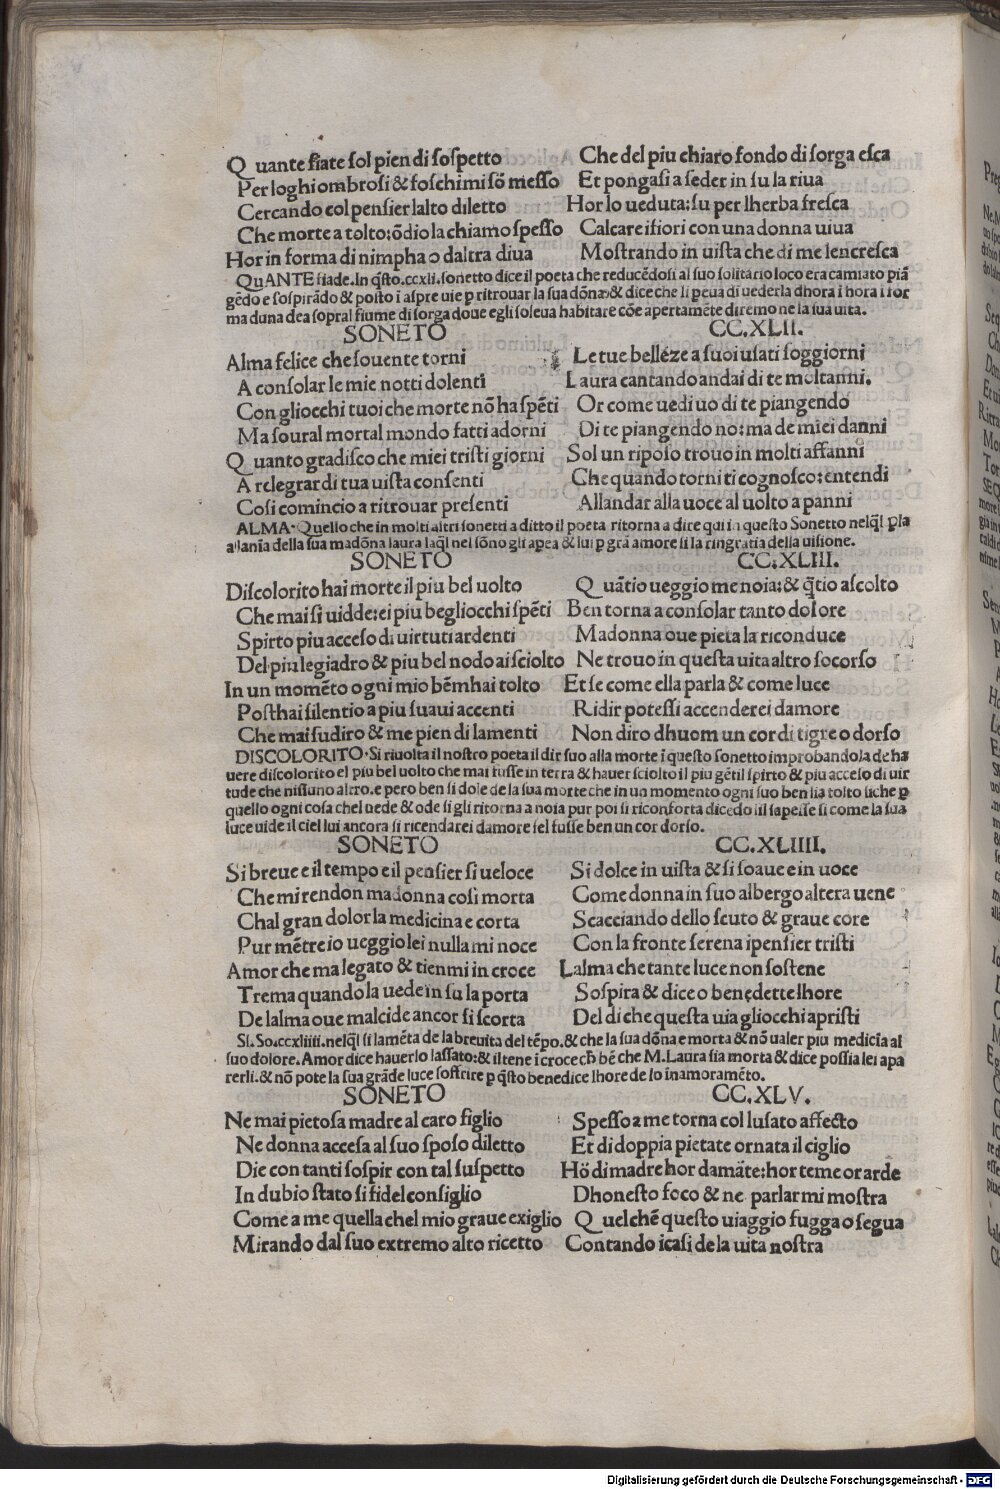 Quante fiate sol pien di sospetto
Per loghi ombrosi & foschi mi sō messo
Cercando col pensier lalto diletto
Che morte a tolto: ōdio la chiamo spesso
Hor in forma di nimpha o daltra diua
Che del piu chiaro fondo di sorga esca
Et pongasi a seder in su la riua
Hor lo ueduta: su per lherba fresca
Calcare i fiori con una donna uiua
Mostrando in uista che di me lencresca
QuANTE fiade. In q̄sto .ccxli. sonetto dice il poeta che reducēdosi al suo solitario loco era camiato piā
gēdo e sospirādo & posto i aspre uie p ritrouar la sua dōna: & dice che li peua di uederla dhora i hora i for
ma duna dea sopral fiume di sorga doue egli soleua habitare cōe apertamēte diremo ne la sua uita.
SONETO CC.XLII.
Alma felice che souente torni
A consolar le mie notti dolenti
Con gliocchi tuoi che morte nō ha spēti
Ma soural mortal mondo fatti adorni
Quanto gradisco che miei tristi giorni
A relegrar di tua uista consenti
Cosi comincio a ritrouar presenti
Le tue belleze a suoi usati soggiorni
Laura cantando andai di te moltanni.
Or come uedi uo di te piangendo
Di te piangendo no: ma de miei danni
Sol un riposo trouo in molti affanni
Che quando torni ti cognosco: entendi
Allandar alla uoce al uolto a panni
ALMA. Quello che in molti altri sonetti a ditto il poeta ritorna a dire qui in questo Sonetto nelq̄l pla
a lania della sua madōna laura laq̄l nel sōno gli apea & lui p grā amore si la ringratia della uisione.
SONETO CC.XLIII.
Discolorito hai morte il piu bel uolto
Che mai si uidde: ei piu begliocchi spēti
Spirto piu acceso di uirtuti ardenti
Del piu legiadro & piu bel nodo ai sciolto
In un momēto ogni mio bē mhai tolto
Posthai silentio a piu suaui accenti
Che mai sudiro & me pien di lamenti
Quātio ueggio me noia: & q̄tio ascolto
Ben torna a consolar tanto dolore
Madonna oue pieta la riconduce
Ne trouo in questa uita altro socorso
Et se come ella parla & come luce
Ridir potessi accenderei damore
Non diro dhuom un cor di tigre o dorso
DISCOLORITO. Si riuolta il nostro poeta il dir suo alla morte ī questo sonetto improbandola de ha
uere discolorito el piu bel uolto che mai fusse in terra & hauer sciolto il piu gētil spirto & piu acceso di uir
tude che nissuno altro. e pero ben si dole de la sua morte che in un momento ogni suo ben lia tolto siche p
quello ogni cosa chel uede & ode si gli ritorna a noia pur poi si riconforta dicēdo i il sapesse si come la sua
luce uide il ciel lui ancora si ricendarei damore sel fusse ben un cor dorso.
SONETO CC.XLIIII.
Si breue e il tempo e il pensier si ueloce
Che mi rendon madonna cosi morta
Chal gran dolor la medicina e corta
Pur mētre io ueggio lei nulla mi noce
Amor che ma legato & tienmi in croce
Trema quando la uede in su la porta
De lalma oue malcide ancor si scorta
Si dolce in uista & si soaue e in uoce
Come donna in suo albergo altera uene
Scacciando dello scuto & graue core
Con la fronte serena i pensier tristi
Lalma che tante luce non sostene
Sospira & dice o benedette lhore
Del di che questa uia gliocchi apristi
SI. So. ccxliiii. nelq̄l si lamēta de la breuita del tēpo. & che la sua dōna e morta & nō ualer piu medicīa al
suo dolore. Amor dice hauerlo lassato: & il tene i croce ch bē che M. Laura sia morta & dice possia lei apa
rerli. & nō pote la sua grāde luce soffrire p q̄sto benedice lhore de lo inamoramēto.
SONETO CC.XLV.
Ne mai pietosa madre al caro figlio
Ne donna accesa al suo sposo diletto
Die con tanti sospir con tal suspetto
In dubio stato si fidel consiglio
Come a me quella chel mio graue exiglio
Mirando dal suo extremo alto ricetto
Spesso a me torna col lusato affecto
Et di doppia pietate ornata il ciglio
Hō di madre hor damāte: hor teme or arde
Dhonesto foco & ne parlar mi mostra
Quel chē questo uiaggio fugga o segua
Contando i casi de la uita nostra
Digitalisierung gefördert durch die Deutsche Forschungsgemeinschaft - DFG